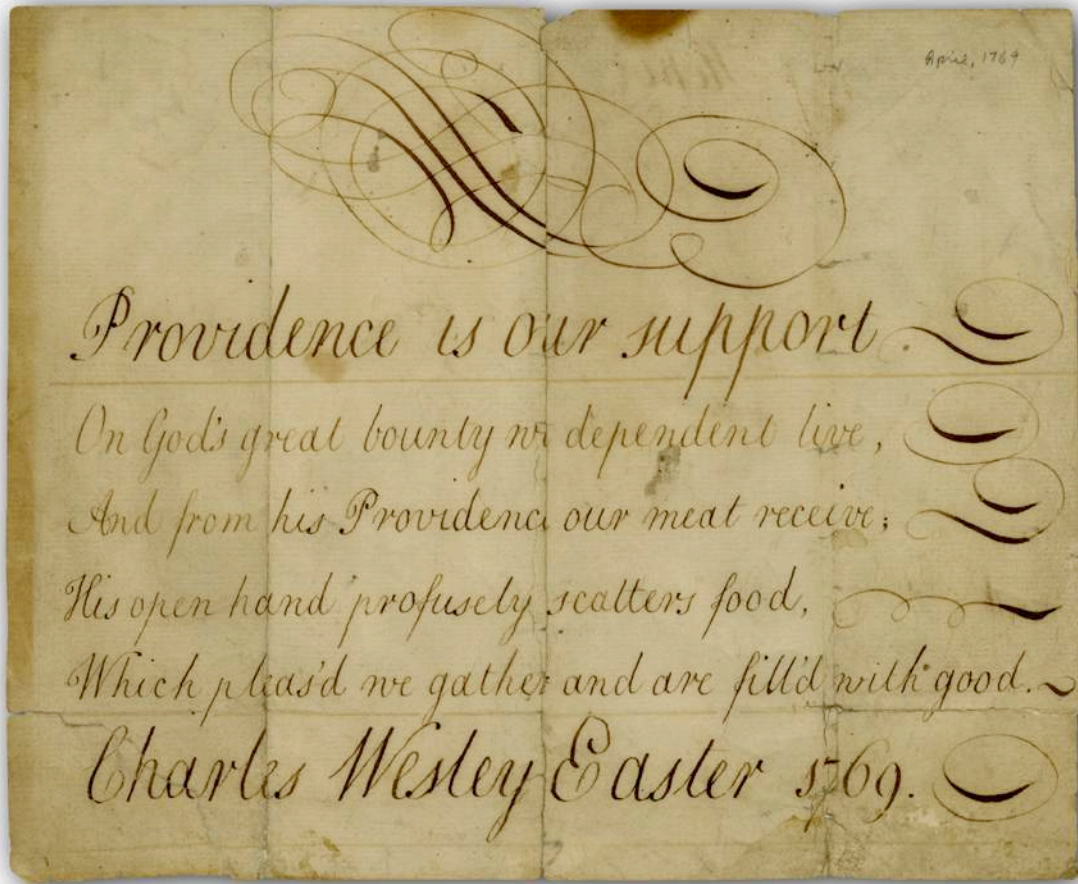 April, 1769
Providence is our support.
On God's great bounty we dependent live,
And from his Providence our meat receive;
His open hand profusely scatters food,
Which pleas'd we gather and are fill'd with good.
Charles Wesley Easter 1769.